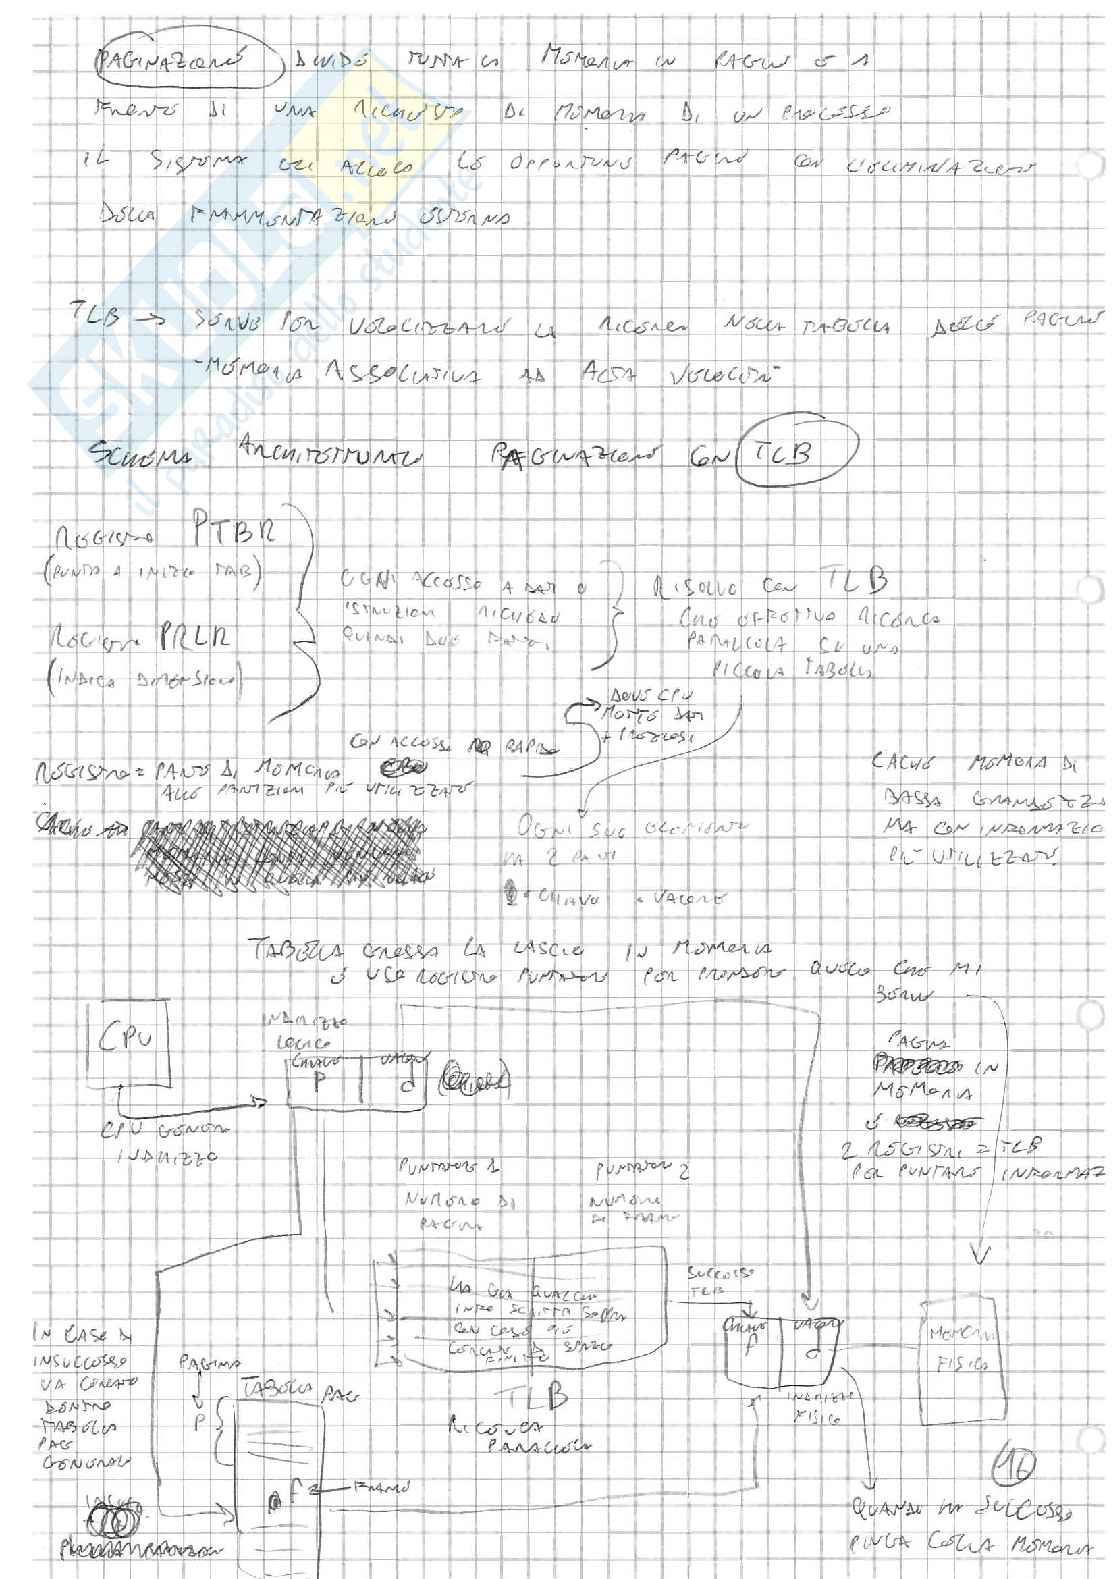 PAGINAZIONE DIVIDE TUTTA LA MEMORIA IN PAGINE E A
FRONTE DI UNA RICHIESTA DI MEMORIA DI UN PROCESSO
IL SISTEMA GLI ALLOCA LE OPPORTUNE PAGINE CON L'ELIMINAZIONE
DELLA FRAMMENTAZIONE ESTERNA
SKUOLA.net
il paradiso dello studente
TLB → SERVE PER VELOCIZZARE LA RICERCA NELLA TABELLA DELLE PAGINE
- MEMORIA ASSOCIATIVA AD ALTA VELOCITÀ
SCHEMA ARCHITETTURALE PAGINAZIONE CON TLB
REGISTRO PTBR
(PUNTA A INIZIO TAB)
REGISTRO PRLR
(INDICA DIMENSIONE)
OGNI ACCESSO A DATI O
ISTRUZIONI RICHIEDE
QUINDI DUE
RISOLVO CON TLB
CHE EFFETTUO RICERCA
PARALLELA SU UNA
PICCOLA TABELLA
DOVE CPU
METTE DATI
+ PREZIOSI
CON ACCESSO RAPIDO
REGISTRO = PARTE DI MEMORIA
ALLE PARTIZIONI PIÙ UTILIZZATE
CACHE MEMORIA DI
BASSA GRANDEZZA
MA CON INFORMAZIO
PIÙ UTILIZZATE
OGNI SUO ELEMENTO
HA 2 PARTI
• CHIAVE • VALORE
TABELLA GROSSA LA LASCIO IN MEMORIA
E USO REGISTRO PUNTATORE PER PRENDERE QUELLO CHE MI
SERVE
CPU
INDIRIZZO
LOGICO
CHIAVE VALORE
P d
CPU GENERA
INDIRIZZO
PAGINA
IN
MEMORIA
E
2 REGISTRI = TLB
PER PUNTARE INFORMAZ
PUNTATORE 1 PUNTATORE 2
NUMERO DI NUMERO
PAGINA DI FRAME
HA GIÀ QUALCHE
INFO SCRITTA SOPRA
SPAZIO
SUCCESSO
TLB
CHIAVE VALORE
f d
INDIRIZZO
FISICO
MEMORIA
FISICA
IN CASO DI
INSUCCESSO
VA CERCATO
DENTRO
TABELLA
PAG
GENERALE
PAGINA
P
TABELLA PAG
TLB
RICERCA
PARALLELA
f FRAME
10
QUANDO HA SUCCESSO
PUNTA CELLA MEMORIA